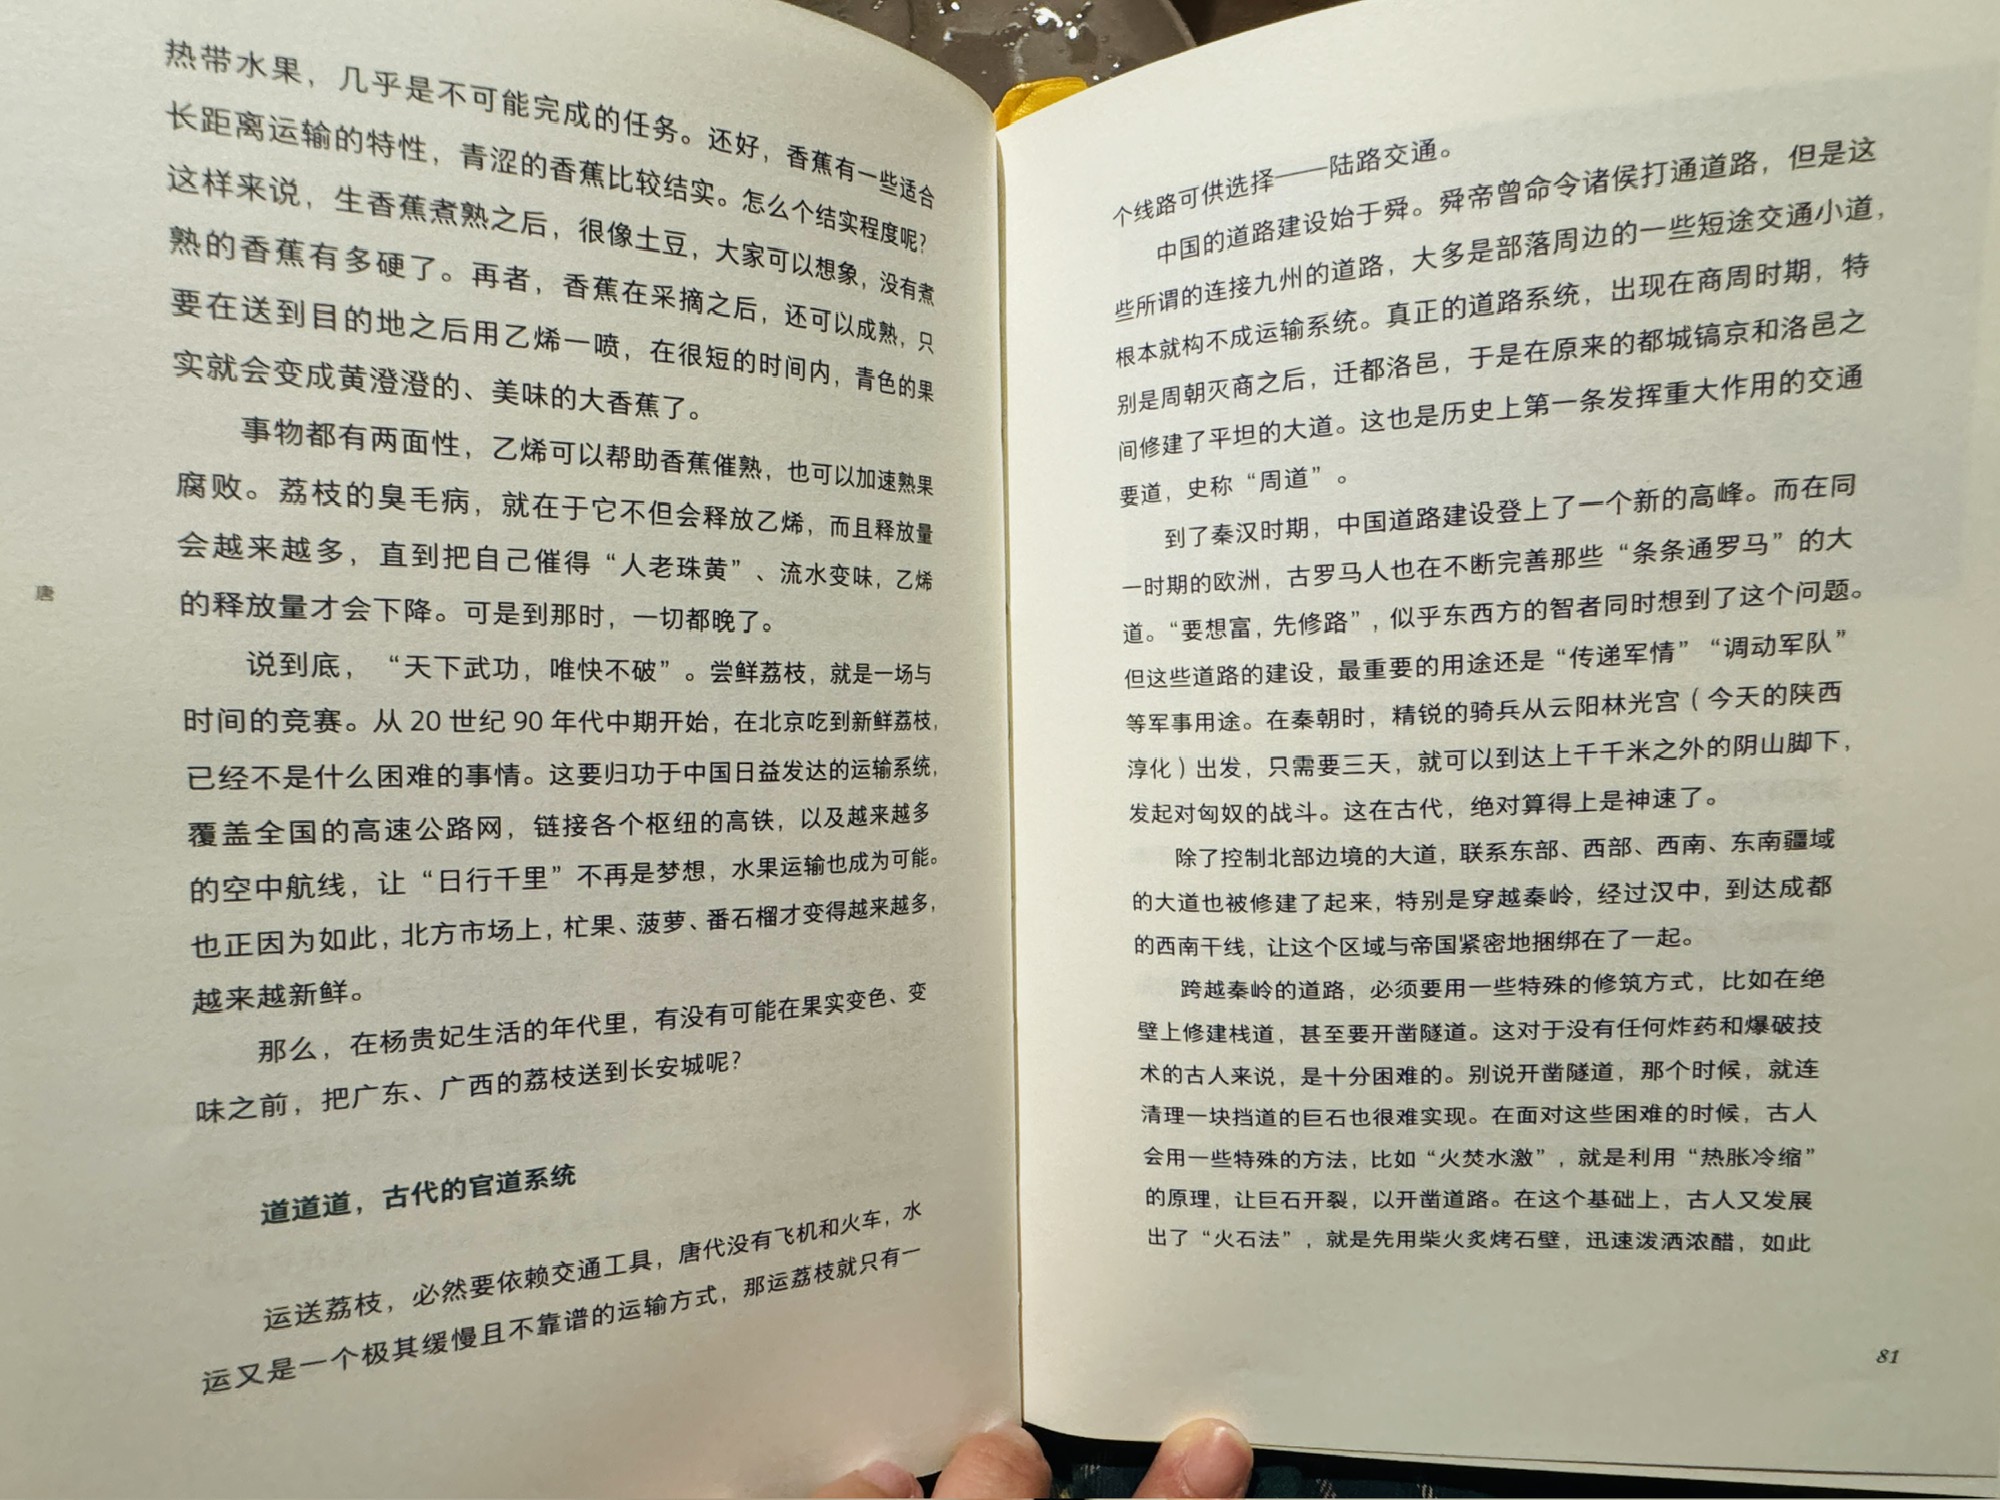 热带水果，几乎是不可能完成的任务。还好，香蕉有一些适合
长距离运输的特性，青涩的香蕉比较结实。怎么个结实程度呢？
这样来说，生香蕉煮熟之后，很像土豆，大家可以想象，没有煮
熟的香蕉有多硬了。再者，香蕉在采摘之后，还可以成熟，只
要在送到目的地之后用乙烯一喷，在很短的时间内，青色的果
实就会变成黄澄澄的、美味的大香蕉了。
事物都有两面性，乙烯可以帮助香蕉催熟，也可以加速熟果
腐败。荔枝的臭毛病，就在于它不但会释放乙烯，而且释放量
会越来越多，直到把自己催得“人老珠黄”、流水变味，乙烯
的释放量才会下降。可是到那时，一切都晚了。
说到底，“天下武功，唯快不破”。尝鲜荔枝，就是一场与
时间的竞赛。从 20 世纪 90 年代中期开始，在北京吃到新鲜荔枝，
已经不是什么困难的事情。这要归功于中国日益发达的运输系统，
覆盖全国的高速公路网，链接各个枢纽的高铁，以及越来越多
的空中航线，让“日行千里”不再是梦想，水果运输也成为可能。
也正因为如此，北方市场上，杧果、菠萝、番石榴才变得越来越多，
越来越新鲜。
那么，在杨贵妃生活的年代里，有没有可能在果实变色、变
味之前，把广东、广西的荔枝送到长安城呢？
道道道，古代的官道系统
运送荔枝，必然要依赖交通工具，唐代没有飞机和火车，水
运又是一个极其缓慢且不靠谱的运输方式，那运荔枝就只有一
唐
个线路可供选择——陆路交通。
中国的道路建设始于舜。舜帝曾命令诸侯打通道路，但是这
些所谓的连接九州的道路，大多是部落周边的一些短途交通小道，
根本就构不成运输系统。真正的道路系统，出现在商周时期，特
别是周朝灭商之后，迁都洛邑，于是在原来的都城镐京和洛邑之
间修建了平坦的大道。这也是历史上第一条发挥重大作用的交通
要道，史称“周道”。
到了秦汉时期，中国道路建设登上了一个新的高峰。而在同
一时期的欧洲，古罗马人也在不断完善那些“条条通罗马”的大
道。“要想富，先修路”，似乎东西方的智者同时想到了这个问题。
但这些道路的建设，最重要的用途还是“传递军情”“调动军队”
等军事用途。在秦朝时，精锐的骑兵从云阳林光宫（今天的陕西
淳化）出发，只需要三天，就可以到达上千千米之外的阴山脚下，
发起对匈奴的战斗。这在古代，绝对算得上是神速了。
除了控制北部边境的大道，联系东部、西部、西南、东南疆域
的大道也被修建了起来，特别是穿越秦岭，经过汉中，到达成都
的西南干线，让这个区域与帝国紧密地捆绑在了一起。
跨越秦岭的道路，必须要用一些特殊的修筑方式，比如在绝
壁上修建栈道，甚至要开凿隧道。这对于没有任何炸药和爆破技
术的古人来说，是十分困难的。别说开凿隧道，那个时候，就连
清理一块挡道的巨石也很难实现。在面对这些困难的时候，古人
会用一些特殊的方法，比如“火焚水激”，就是利用“热胀冷缩”
的原理，让巨石开裂，以开凿道路。在这个基础上，古人又发展
出了“火石法”，就是先用柴火炙烤石壁，迅速泼洒浓醋，如此
81